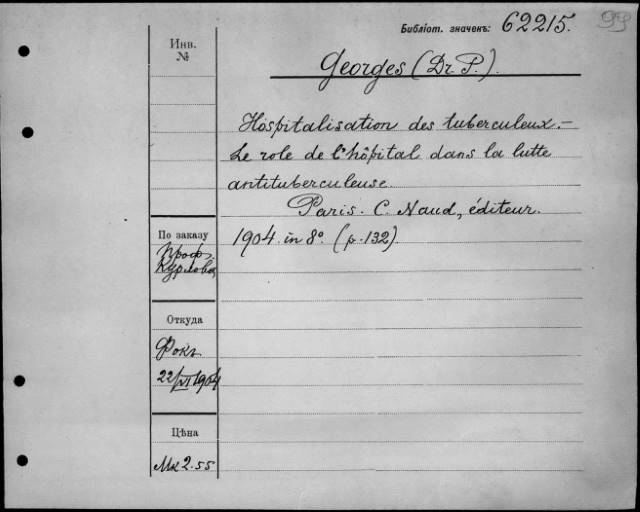 Библіот. значекъ: 62215.
99
Инв.
№
Georges (Dr. P.).
Hospitalisation des tuberculeux.—
Le role de l'hôpital dans la lutte
antituberculeuse.
Paris. C. Naud, éditeur.
1904. in 8°. (p. 132).
По заказу
Проф.
Курлова
Откуда
Фокъ
22/VI 1904
Цѣна
Мк 2.55